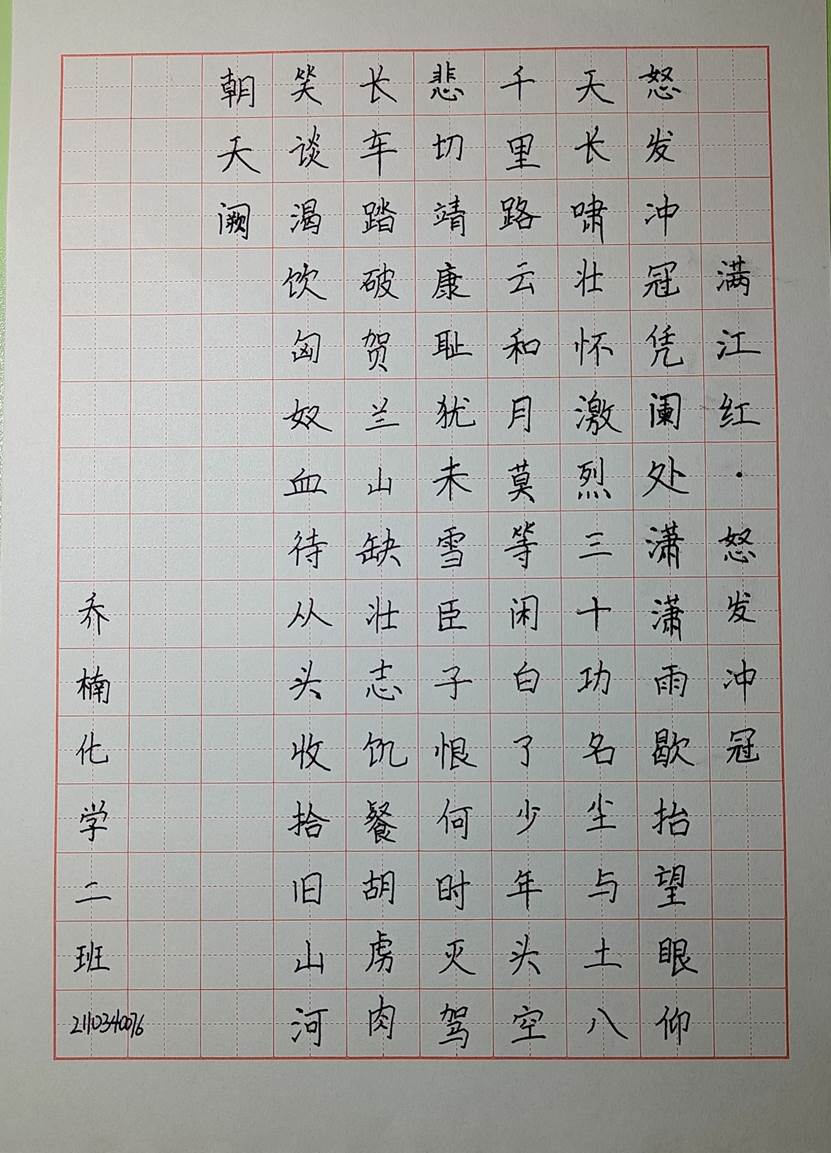 满江红·怒发冲冠
怒发冲冠凭阑处潇潇雨歇抬望眼仰
天长啸壮怀激烈三十功名尘与土八
千里路云和月莫等闲白了少年头空
悲切靖康耻犹未雪臣子恨何时灭驾
长车踏破贺兰山缺壮志饥餐胡虏肉
笑谈渴饮匈奴血待从头收拾旧山河
朝天阙
乔楠化学二班2110340076